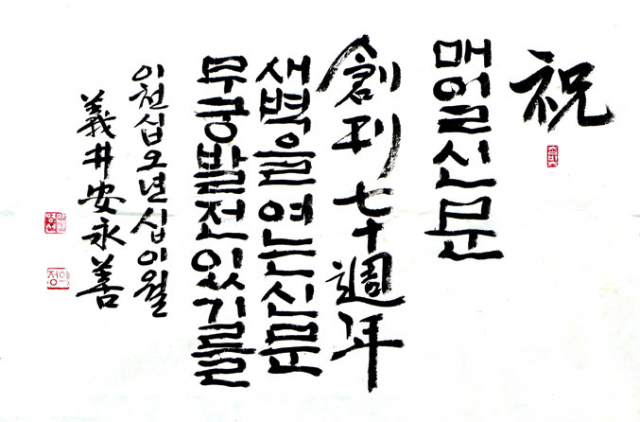 祝
매일신문
創刊七十週年
새벽을 여는 신문
무궁발전 있기를
이천십오년 십이월
義井 安永善